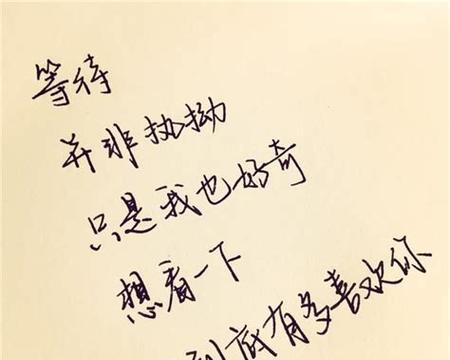 等待
并非执拗
只是我也好奇
想看一下
到底有多喜欢你